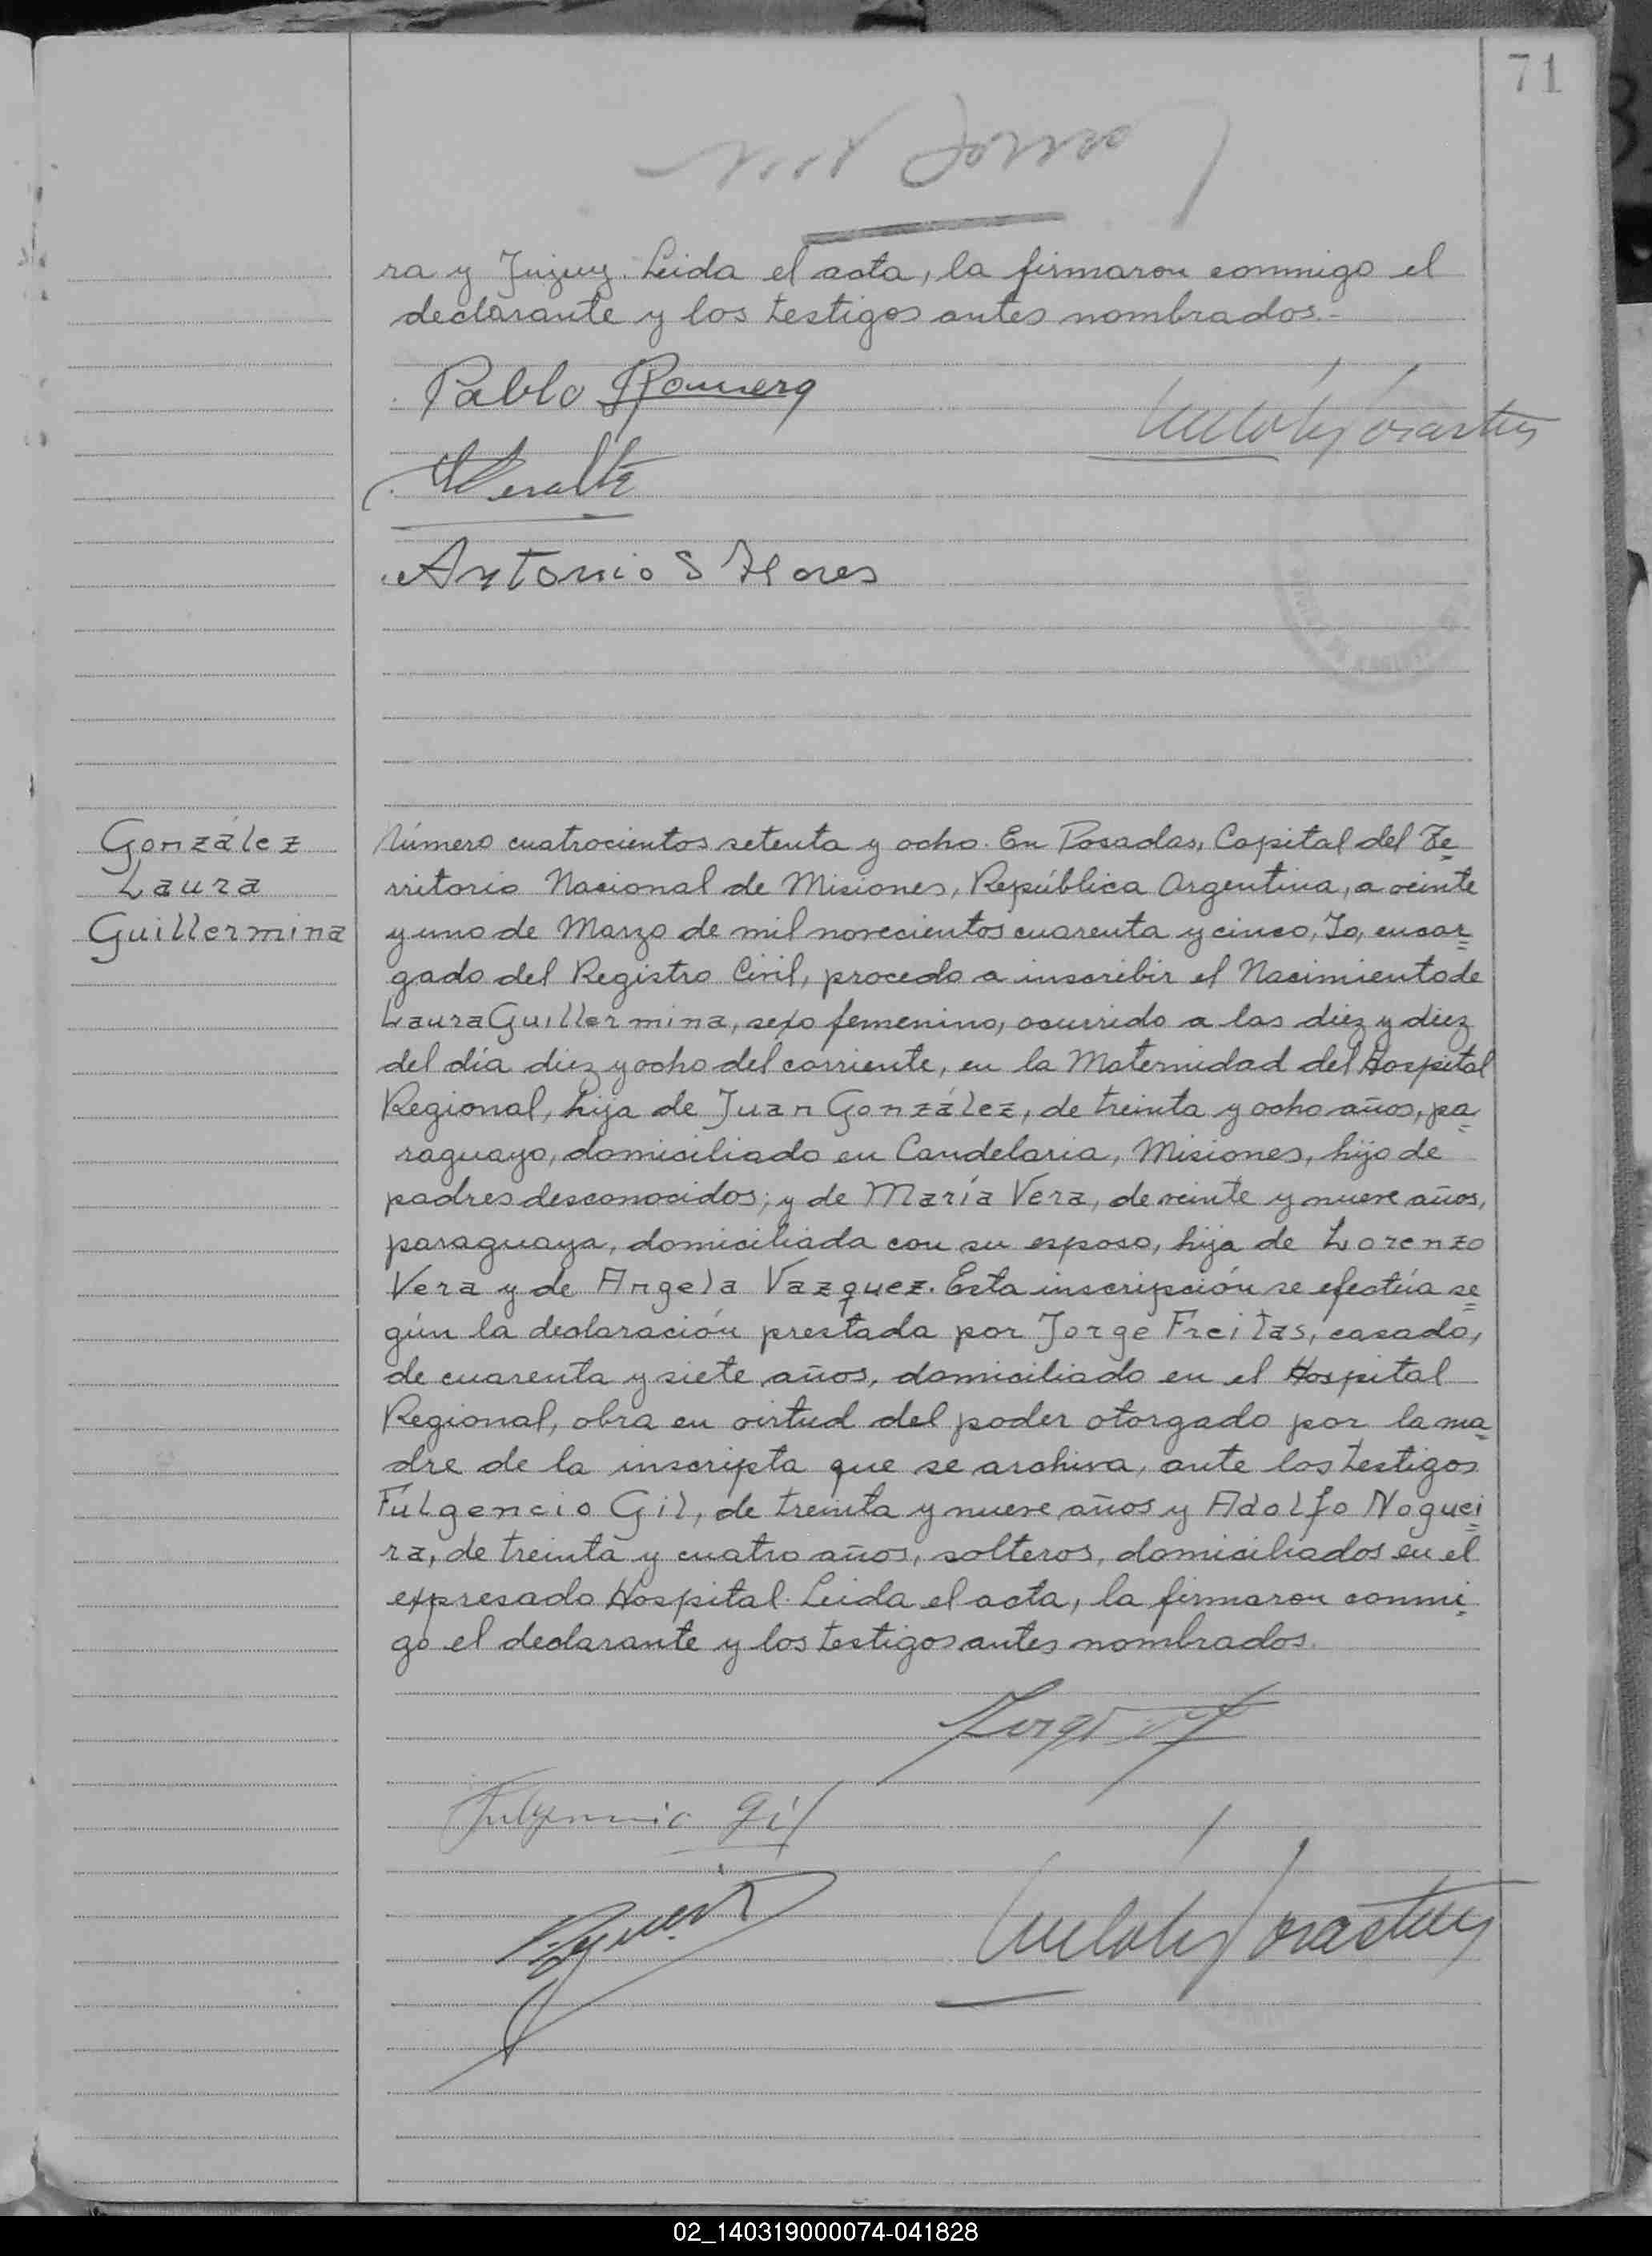 71
ra y Jujuy. Leida el acta, la firmaron conmigo el
declarante y los testigos antes nombrados.-
Pablo Romero
Peralta
Antonio S Flores
González
Laura
Guillermina
Número cuatrocientos setenta y ocho. En Posadas, Capital del Te=
rritorio Nacional de Misiones, República Argentina, a veinte
y uno de Marzo de mil novecientos cuarenta y cinco, Yo, encar=
gado del Registro Civil, procedo a inscribir el Nacimiento de
Laura Guillermina, sexo femenino, ocurrido a las diez y diez
del día diez y ocho del corriente, en la Maternidad del Hospital
Regional, hija de Juan González, de treinta y ocho años, pa=
raguayo, domiciliado en Candelaria, Misiones, hijo de
padres desconocidos; y de María Vera, de veinte y nueve años,
paraguaya, domiciliada con su esposo, hija de Lorenzo
Vera y de Angela Vazquez. Esta inscripción se efectúa se=
gún la declaración prestada por Jorge Freitas, casado,
de cuarenta y siete años, domiciliado en el Hospital
Regional, obra en virtud del poder otorgado por la ma=
dre de la inscripta que se archiva, ante los testigos
Fulgencio Gil, de treinta y nueve años y Adolfo Noguei=
ra, de treinta y cuatro años, solteros, domiciliados en el
expresado Hospital. Leida el acta, la firmaron conmi=
go el declarante y los testigos antes nombrados.
Fulgencio Gil
02_140319000074-041828